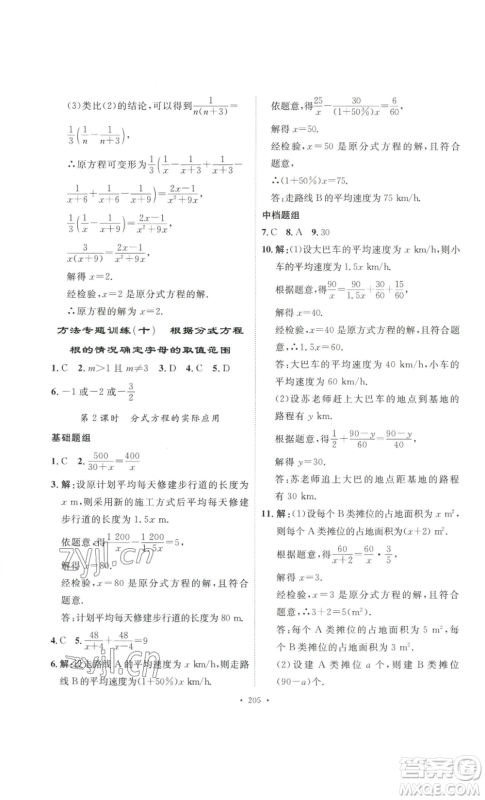 (3)类比(2)的结论,可以得到 1/n(n+3) =
1/3(1/n - 1/n+3)
∴原方程可变形为 1/3(1/x - 1/x+3 +
1/x+3 - 1/x+6 + 1/x+6 - 1/x+9) =
3/2x+18,
解得 x=2.
经检验,x=2 是原分式方程的解.
方法专题训练(十) 根据分式方程
根的情况确定字母的取值范围
1. C 2. m>1 且 m≠3 3. D 4. C 5. D
6. -1 或-2 或-3/2
第 2 课时 分式方程的实际应用
基础题组
1. C 2. 500/30+x = 400/x
3. 解:设原计划平均每天修建步行道的长度为
x m,则采用新的施工方式后平均每天修建
步行道的长度为 1.5x m.
依题意,得 1 200/x - 1 200/1.5x = 5,
解得 x=80.
经检验,x=80 是原方程的解,且符合题意.
答:计划平均每天修建步行道的长度为 80 m.
4. C 5. 48/x+4 + 48/x-4 = 9
6. 解:设走路线 A 的平均速度为 x km/h,则走路
线 B 的平均速度为(1+50%)x km/h.
依题意,得 25/x - 30/(1+50%)x = 6/60
解得 x=50.
经检验,x=50 是原分式方程的解,且符合
题意.
∴(1+50%)x=75.
答:走路线 B 的平均速度为 75 km/h.
中档题组
7. C 8. A 9. 30
10. 解:(1)设大巴车的平均速度为 x km/h,则小
车的平均速度为 1.5x km/h.
根据题意,得 90/x = 90/1.5x + 30/60 + 15/60.
解得 x=40.
经检验,x=40 是原方程的解,且符合题
意,∴1.5x=60.
答:大巴车的平均速度为 40 km/h,小车
的平均速度为 60 km/h.
(2)设苏老师赶上大巴车的地点到基地的
路程为 y km.
根据题意,得 1/2 + 90-y/60 = 90-y/40
解得 y=30.
答:苏老师追上大巴车的地点距基地的路
程是 30 km.
11. 解:(1)设每个 B 类摊位的占地面积为 x m²,
则每个 A 类摊位的占地面积为(x+2) m².
根据题意,得 60/x+2 = 60/x · 3/5,
解得 x=3.
经检验,x=3 是原方程的解,且符合题
意,∴3+2=5.
答:每个 A 类摊位的占地面积为 5 m²,每
个 B 类摊位的占地面积为 3 m².
(2)设建 A 类摊位 a 个,则建 B 类摊位
(90-a)个.
· 205 ·
zyjl.cn
zyjl.cn
作业精灵